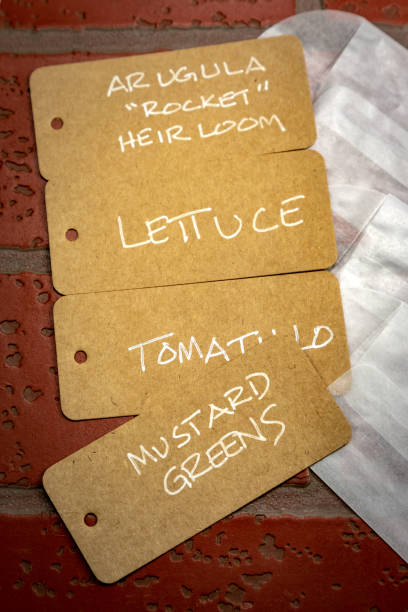 ARUGULA
"ROCKET"
HEIRLOOM
LETTUCE
TOMATILLO
MUSTARD
GREENS